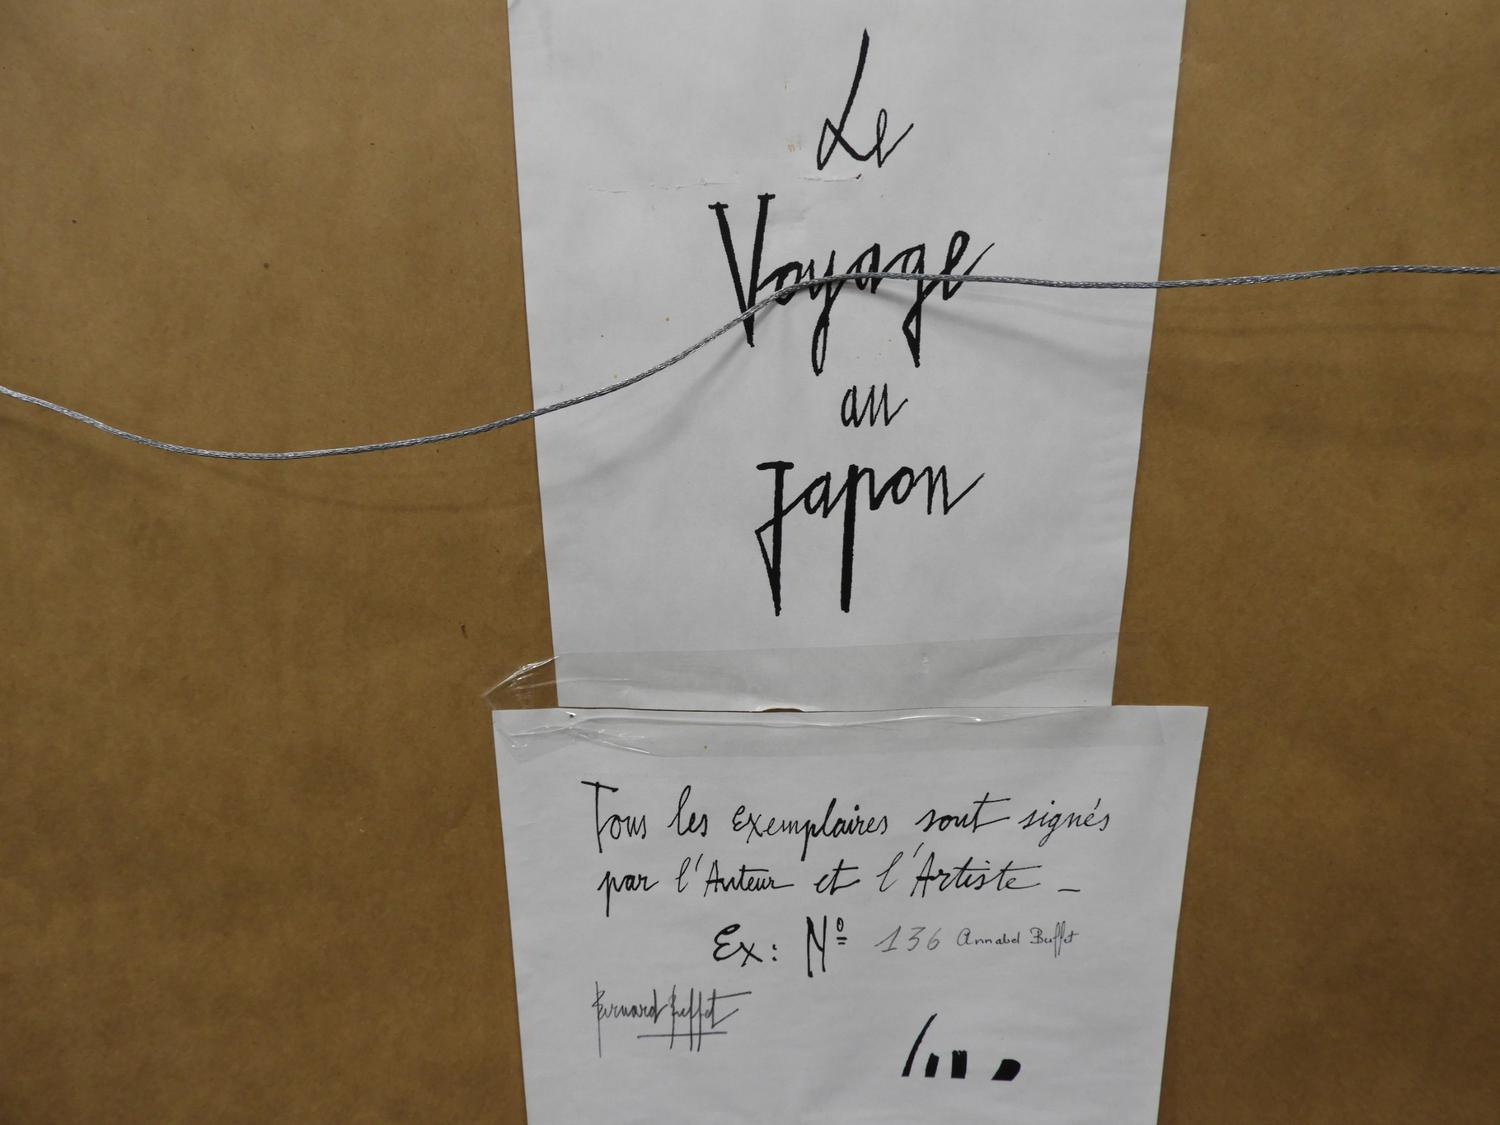 Le
Voyage
au
Japon
Tous les exemplaires sont signés
par l'Auteur et l'Artiste _
Ex: Nº 136 Annabel Buffet
Bernard Buffet